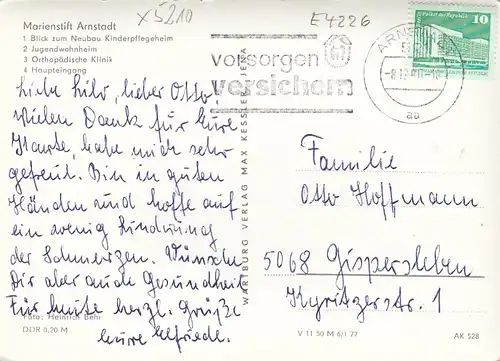 Marienstift Arnstadt
1 Blick zum Neubau Kinderpflegeheim
2 Jugendwohnheim
3 Orthopädische Klinik
4 Haupteingang
x5210
E4226
vorsorgen
versichern
ARNSTADT
10
aa
Liebe Hilo, lieber Otto.
Vielen Dank für Eure
Karte, habe mich sehr
gefreut. Bin in guten
Händen und hoffe auf
ein wenig Linderung
der Schmerzen. Wünsche
Dir aber auch Gesundheit
Für heute herzl. Grüße
Eure Elfriede.
Foto: Heinrich Behr
DDR 0,20 M
WARTBURG VERLAG MAX KESSLER JENA
Familie
Otto Hoffmann
5068 Gispersleben
Kyritzerstr. 1
V 11 50 M 6/1 77
AK 528